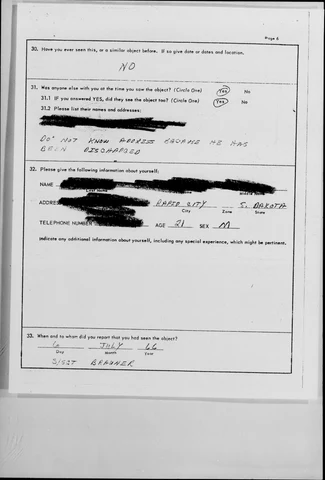 Page 6
30. Have you ever seen this, or a similar object before. If so give date or dates and location.
NO
31. Was anyone else with you at the time you saw the object? (Circle One) Yes No
31.1 If you answered YES, did they see the object too? (Circle One) Yes No
31.2 Please list their names and addresses:
DO NOT KNOW ADDRESS HE HAS
BEEN DISCHARGED
32. Please give the following information about yourself:
NAME
Last Name Middle Name
ADDRESS RAPID CITY S. DAKOTA
City Zone State
TELEPHONE NUMBER AGE 21 SEX M
Indicate any additional information about yourself, including any special experience, which might be pertinent.
33. When and to whom did you report that you had seen the object?
6 JULY 66
Day Month Year
S/SGT